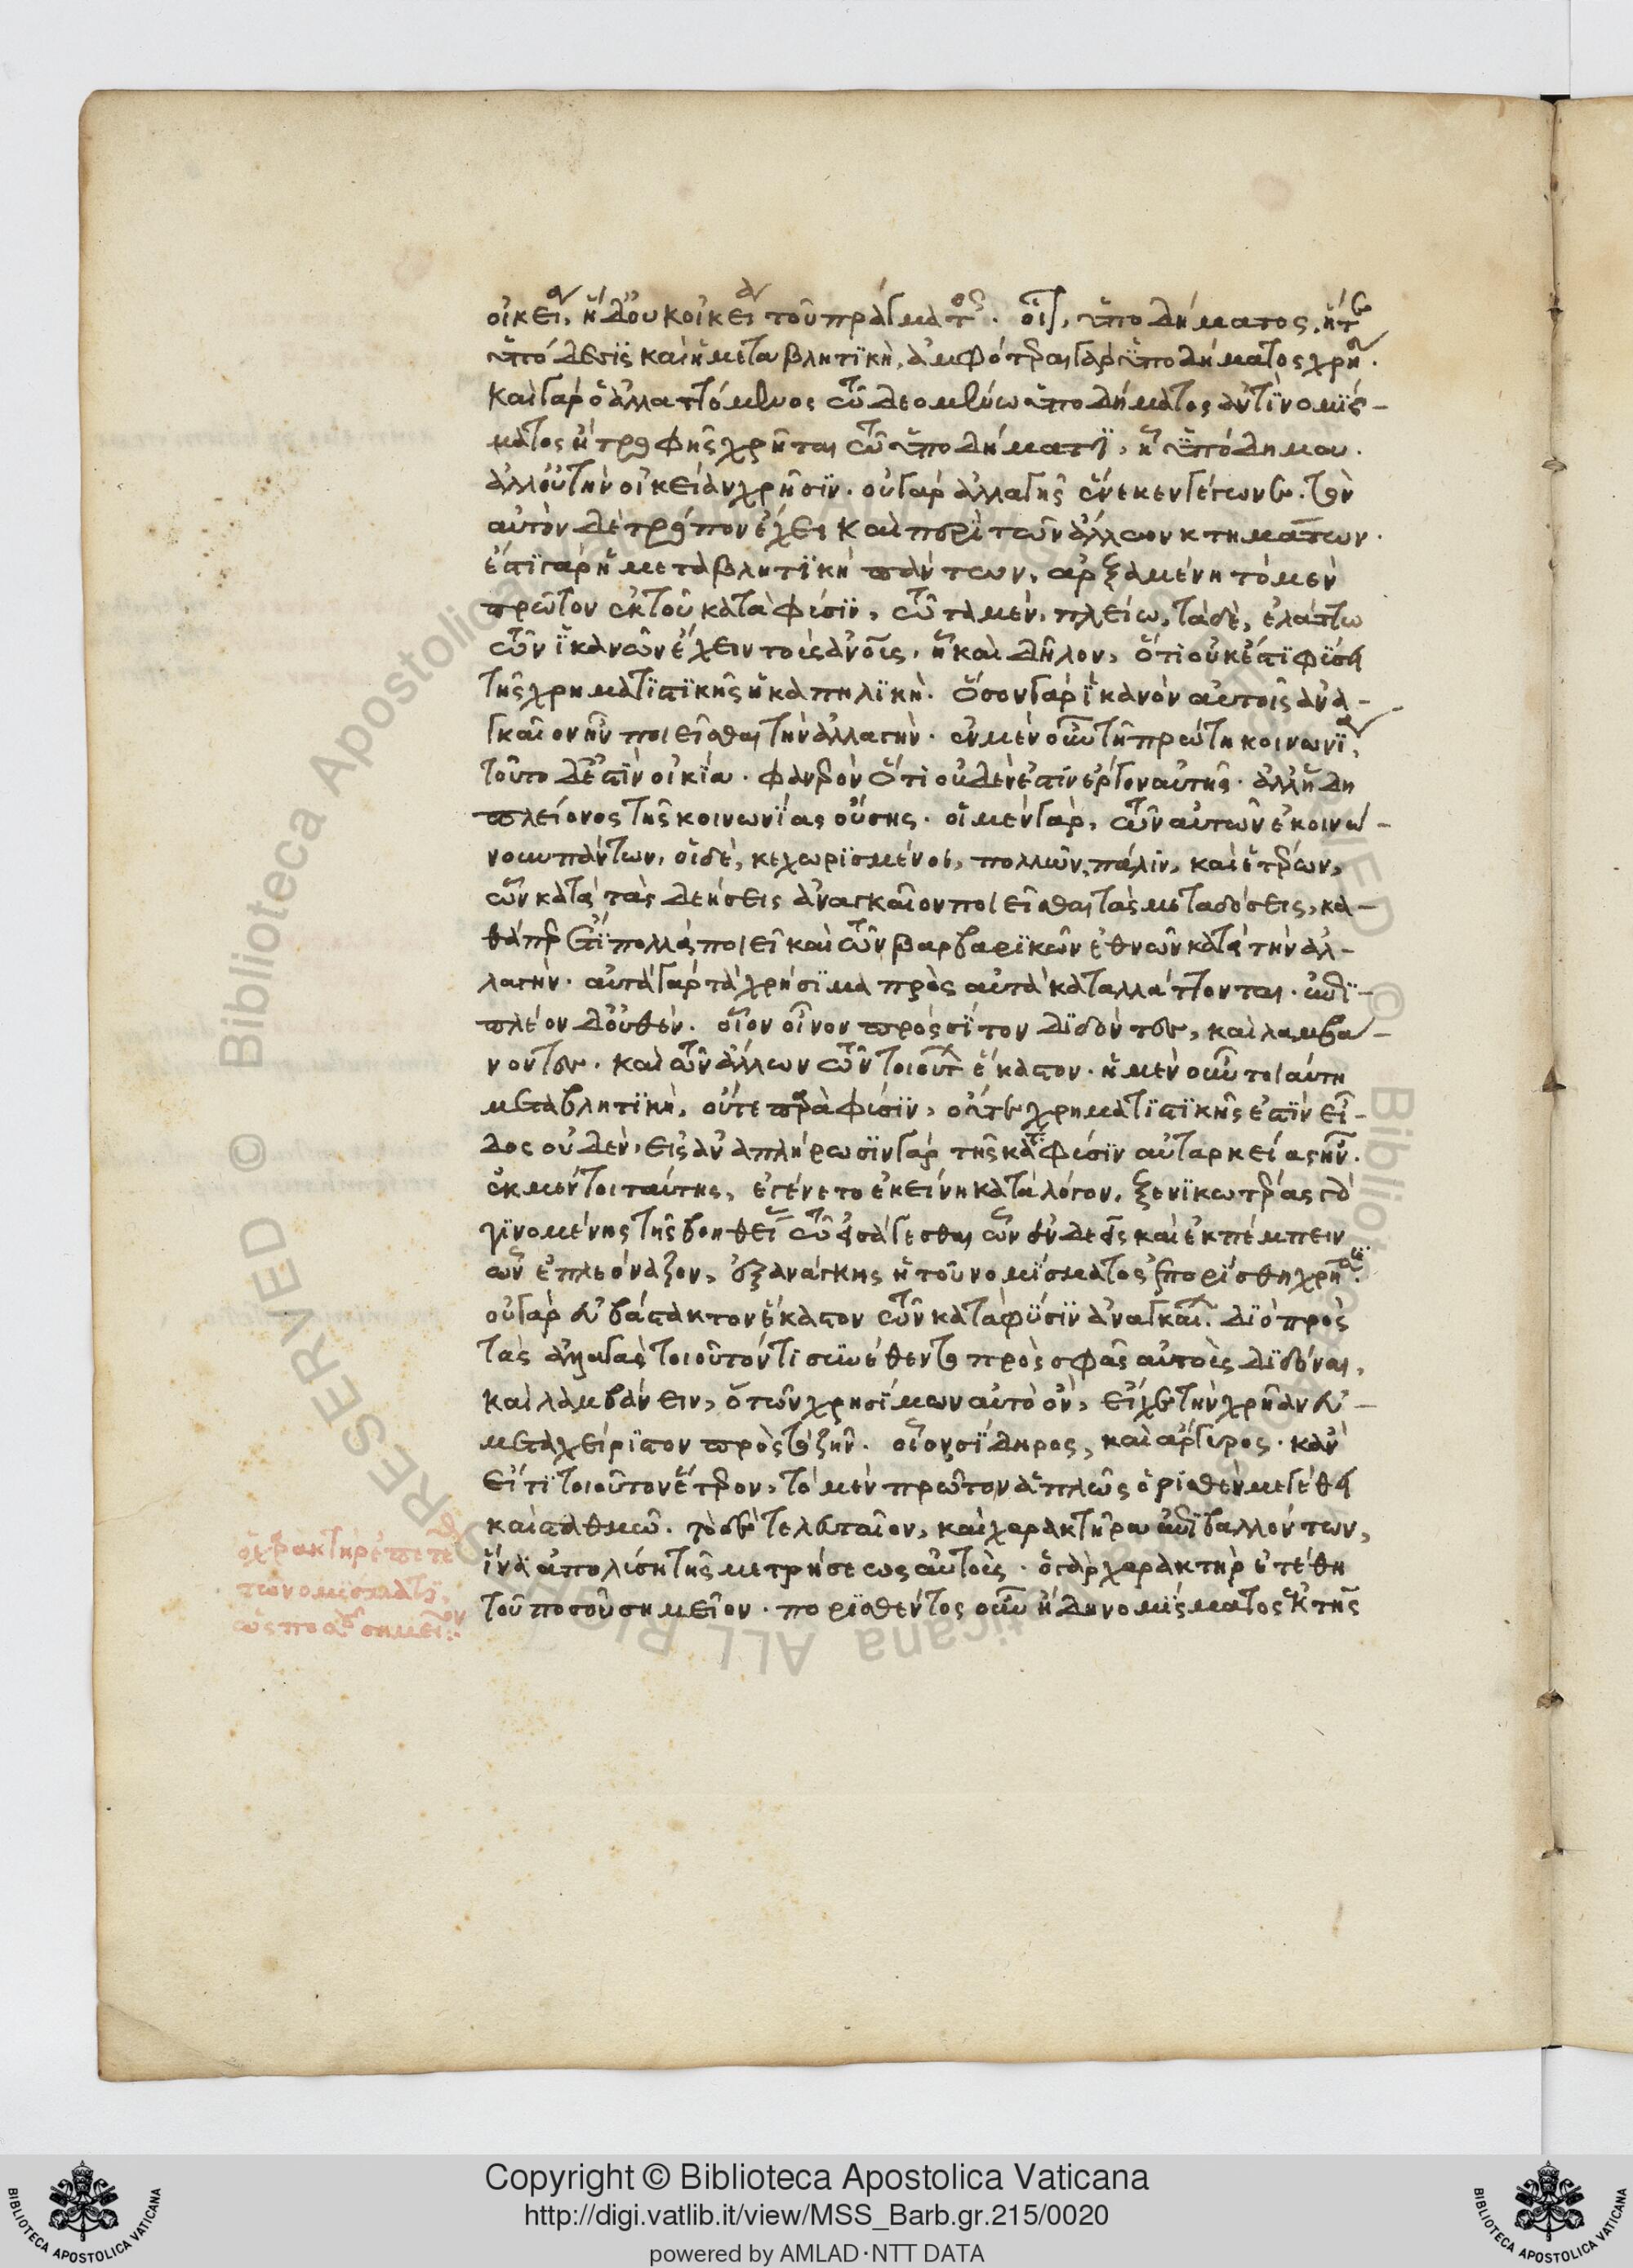 οἰκεία, ἡ δ' οὐκ οἰκεία τοῦ πράγματος. οἷον, ὑποδήματος, ἥτε
ὑπόδεσις καὶ ἡ μεταβλητικὴ, ἀμφότεραι γὰρ ὑποδήματος χρήσεις.
καὶ γὰρ ὁ ἀλλαττόμενος τῶ δεομένω ὑποδήματος ἀντὶ νομίσ-
ματος ἢ τροφῆς χρῆται τῶ ὑποδήματι, ἧ ὑπόδημα.
ἀλλ' οὐ τὴν οἰκείαν χρῆσιν. οὐ γὰρ ἀλλαγῆς ἕνεκεν γέγονε. τὸν
αὐτὸν δὲ τρόπον ἔχει καὶ περὶ τῶν ἄλλων κτημάτων.
ἔστι γὰρ ἡ μεταβλητικὴ πάντων, ἀρξαμένη τὸ μὲν
πρῶτον ἐκ τοῦ κατὰ φύσιν, τῶ τὰ μὲν, πλείω, τὰ δὲ, ἐλάττω
τῶν ἱκανῶν ἔχειν τοὺς ἀνους, ἧ καὶ δῆλον, ὅτι οὐκ ἔστι φύσει
τῆς χρηματιστικῆς ἡ καπηλικὴ. ὅσον γὰρ ἱκανὸν αὐτοῖς ἀνα-
γκαῖον ἦν ποιεῖσθαι τὴν ἀλλαγὴν. ἐν μὲν οὖν τῆ πρώτη κοινωνία,
τοῦτο δ' ἐστὶν οἰκία. φανερὸν ὅτι οὐδὲν ἐστὶν ἔργον αὐτῆς. ἀλλ' ἤδη
πλείονος τῆς κοινωνίας οὔσης. οἱ μὲν γὰρ, τῶν αὐτῶν ἐκοινώ-
νουν πάντων, οἱ δὲ, κεχωρισμένοι, πολλῶν πάλιν, καὶ ἑτέρων,
ὧν κατὰ τὰς δεήσεις ἀναγκαῖον ποιεῖσθαι τὰς μεταδόσεις, κα-
θάπερ ἔτι πολλὰ ποιεῖ καὶ τῶν βαρβαρικῶν ἐθνῶν κατὰ τὴν ἀλ-
λαγὴν. αὐτὰ γὰρ τὰ χρήσιμα πρὸς αὐτὰ καταλλάττονται. ἐπὶ-
πλέον δ' οὐθὲν. οἷον οἶνον πρὸς σῖτον διδόντες, καὶ λαμβά-
νοντες. καὶ τῶν ἄλλων τῶν τοιούτων ἕκαστον. ἡ μὲν οὖν τοιαύτη
μεταβλητικὴ, οὔτε παρὰ φύσιν, οὔτε χρηματιστικῆς ἐστὶν εἶ-
δος οὐδὲν, εἰς ἀναπλήρωσιν γὰρ τῆς κατὰ φύσιν αὐταρκείας ἦν.
ἐκ μέντοι ταύτης, ἐγένετο ἐκείνη κατὰ λόγον, ξενικωτέρας γὰρ
γινομένης τῆς βοηθείας τῶ εἰσάγεσθαι ὧν ἐνδεεῖς καὶ ἐκπέμπειν
ὧν ἐπλεόναζον, ἐξ ἀνάγκης ἡ τοῦ νομίσματος ἐπορίσθη χρῆσις.
οὐ γὰρ εὐβάστακτον ἕκαστον τῶν κατὰ φύσιν ἀναγκαίων. διὸ πρὸς
τὰς ἀλλαγὰς τοιοῦτόν τι συνέθεντο πρὸς σφᾶς αὐτοὺς διδόναι,
καὶ λαμβάνειν, ὃ τῶν χρησίμων αὐτὸ ὂν, εἶχε τὴν χρείαν εὐ-
μεταχείριστον πρὸς τὸ ζῆν. οἷον σίδηρος, καὶ ἄργυρος. κἂν
εἴ τι τοιοῦτον ἕτερον, τὸ μὲν πρῶτον ἁπλῶς ὁρισθὲν μεγέθει
καὶ σταθμῶ. τὸ δὲ τελευταῖον, καὶ χαρακτῆρα ἐπιβαλλόντων,
ἵνα ἀπολύση τῆς μετρήσεως αὐτοὺς. ὁ γὰρ χαρακτὴρ ἐτέθη
τοῦ ποσοῦ σημεῖον. πορισθέντος οὖν ἤδη νομίσματος ἐκ τῆς
ὁ χαρακτὴρ ἐπετέθη
τῶ νομίσματι,
ὡς ποσοῦ σημεῖον:
Copyright © Biblioteca Apostolica Vaticana
http://digi.vatlib.it/view/MSS_Barb.gr.215/0020
powered by AMLAD·NTT DATA
BIBLIOTECA APOSTOLICA VATICANA
BIBLIOTECA APOSTOLICA VATICANA
© Biblioteca Apostolica Vaticana ALL RIGHTS RESERVED